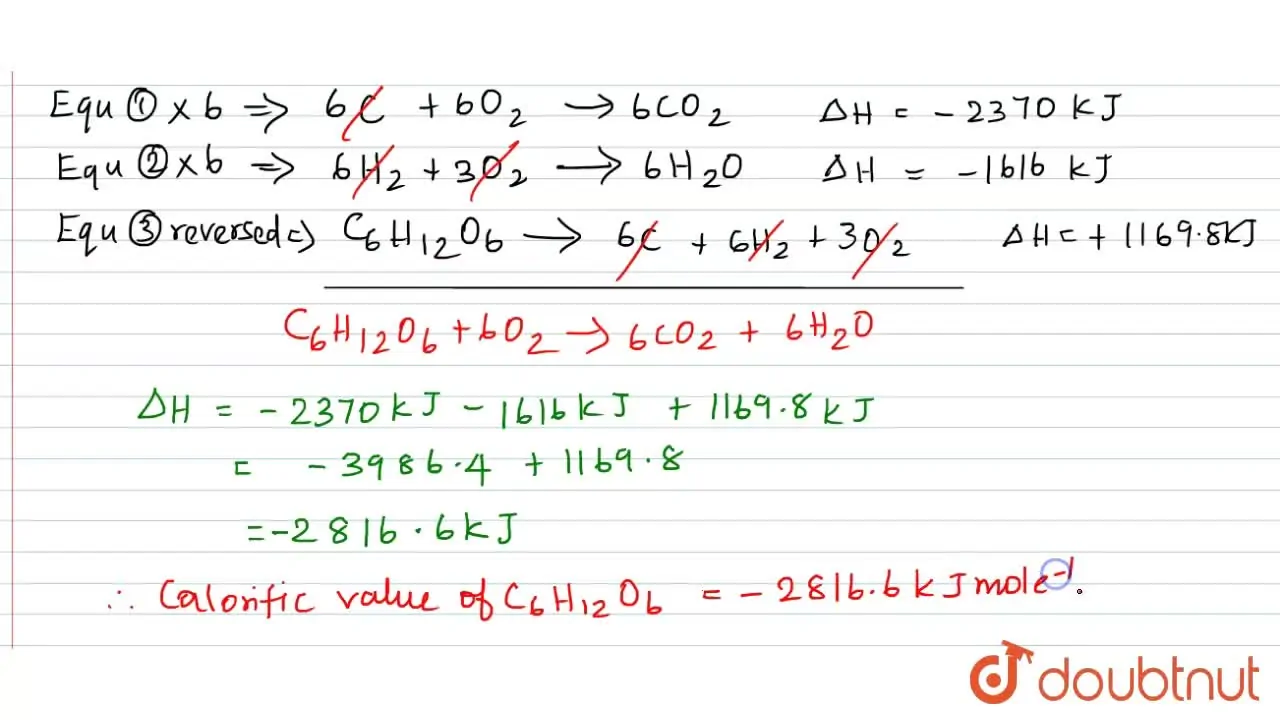 Equ ① × 6 ⇒ 6C + 6O₂ → 6CO₂ ΔH = -2370 KJ
Equ ② × 6 ⇒ 6H₂ + 3O₂ → 6H₂O ΔH = -1616 KJ
Equ ③ reversed ⇒ C₆H₁₂O₆ → 6C + 6H₂ + 3O₂ ΔH = + 1169.8KJ
C₆H₁₂O₆ + 6O₂ → 6CO₂ + 6H₂O
ΔH = -2370 kJ - 1616 kJ + 1169.8 kJ
= -3986.4 + 1169.8
= -2816.6 kJ
∴ Calorific value of C₆H₁₂O₆ = -2816.6 kJ mole⁻¹.
doubtnut